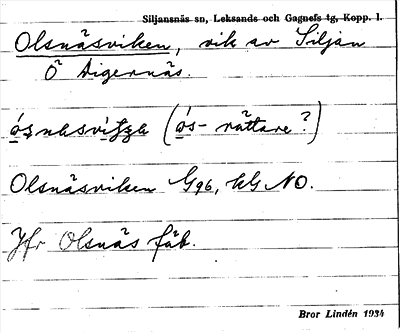 Siljansnäs sn, Leksands och Gagnefs tg, Kopp. l.
Olsnäsviken, vik av Siljan
Ö Digernäs.
( ós- rättare ? )
Olsnäsviken G96, kG NO.
Jfr Olsnäs fäb.
Bror Lindén 1934